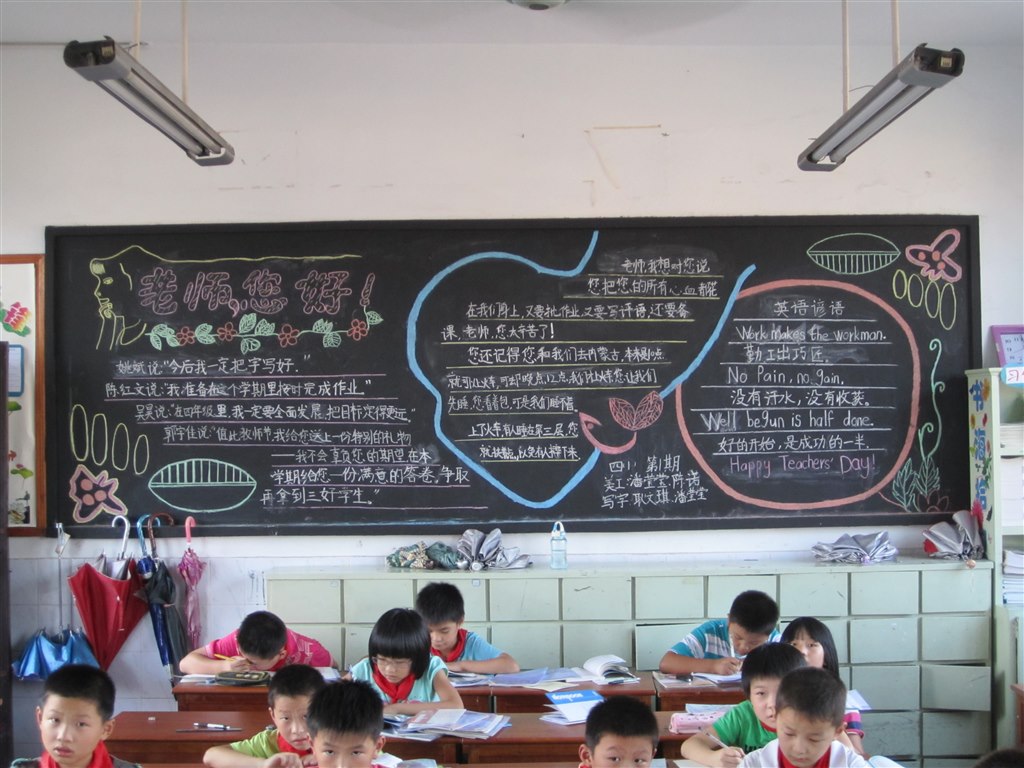 老师,您好!
姚斌说:"今后我一定把字写好."
陈红文说:"我准备在这个学期里按时完成作业."
吴昊说:"在四年级里,我一定要全面发展,把目标定得更远."
郭宇佳说:"值此教师节,我给您送上一份特别的礼物
——我不会辜负您的期望,在本
学期给您一份满意的答卷,争取
再拿到三好学生."
老师,我想对您说
您把您的所有心血都花
在我们身上,又要批作业,又要写评语,还要备
课,老师,您太辛苦了!
您还记得您和我们去内蒙古,本来9点
上了火车,有人睡在第三层,您
四(1) 第1期
美工:潘堂堂,陈诺
写字:耿文琪,潘堂堂
英语谚语
Work makes the workman.
勤工出巧匠.
No Pain, no gain.
没有汗水,没有收获.
Well begun is half done.
好的开始,是成功的一半.
Happy Teachers' Day!
书海拾